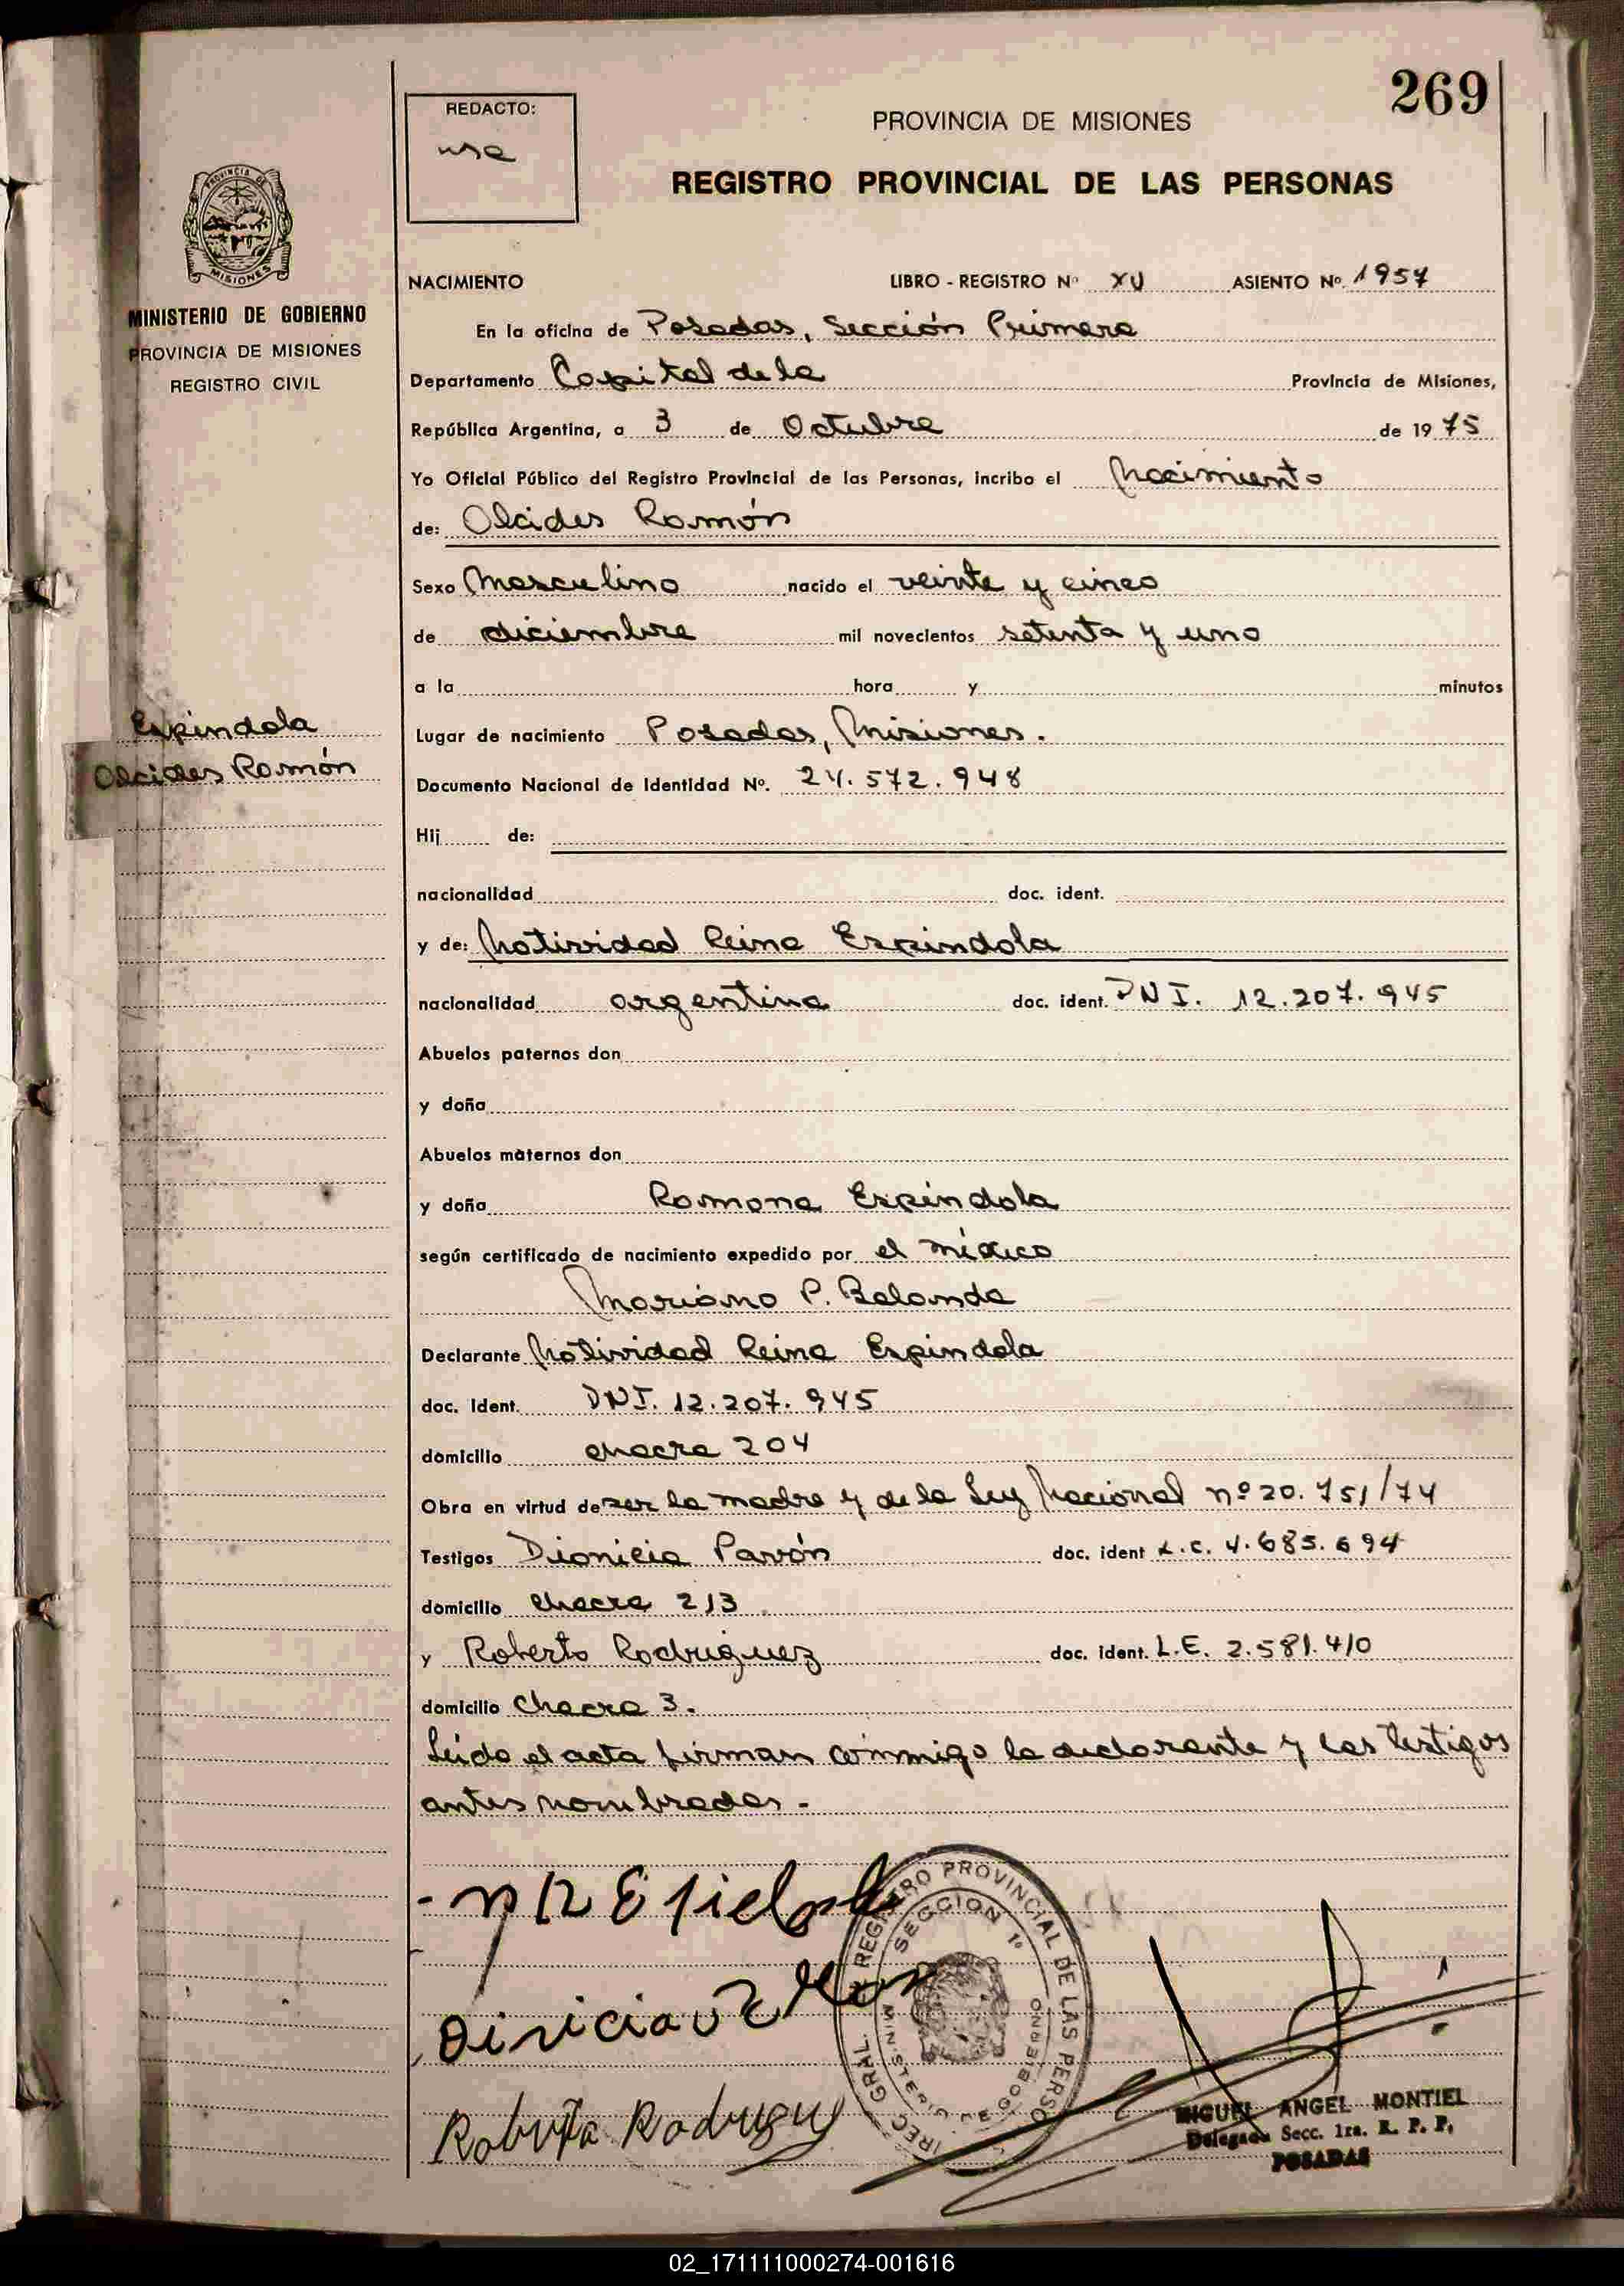 269
REDACTO:
PROVINCIA DE MISIONES
REGISTRO PROVINCIAL DE LAS PERSONAS
PROVINCIA DE
MISIONES
MINISTERIO DE GOBIERNO
PROVINCIA DE MISIONES
REGISTRO CIVIL
NACIMIENTO LIBRO - REGISTRO Nº XV ASIENTO Nº 1957
En la oficina de Posadas, Sección Primera
Departamento Capital de la Provincia de Misiones,
República Argentina, a 3 de Octubre de 1975
Yo Oficial Público del Registro Provincial de las Personas, incribo el Nacimiento
de: Alcides Ramón
Sexo Masculino nacido el veinte y cinco
de diciembre mil novecientos setenta y uno
a la hora y minutos
Espindola
Alcides Ramón
Lugar de nacimiento Posadas, Misiones.
Documento Nacional de Identidad Nº. 24.572.948
Hij de:
nacionalidad doc. ident.
y de: Natividad Reina Espindola
nacionalidad argentina doc. ident. DNI. 12.207.945
Abuelos paternos don
y doña
Abuelos maternos don
y doña Ramona Espindola
según certificado de nacimiento expedido por el médico
Mariano P. Balanda
Declarante Natividad Reina Espindola
doc. Ident. DNI. 12.207.945
domicilio chacra 204
Obra en virtud de ser la madre y de la Ley Nacional nº 20.751/74
Testigos Dionicia Pavón doc. ident L.C. 4.685.694
domicilio chacra 213
y Roberto Rodriguez doc. ident. L.E. 2.581.410
domicilio Chacra 3.
Leída el acta firman conmigo la declarante y los testigos
antes nombrados.-
REGISTRO PROVINCIAL DE LAS PERSO
SECCION 1º
MINISTERIO DE GOBIERNO
GRAL.
Roberto Rodrigu
MIGUEL ANGEL MONTIEL
Delegado Secc. 1ra. R. P. P.
POSADAS
02_171111000274-001616